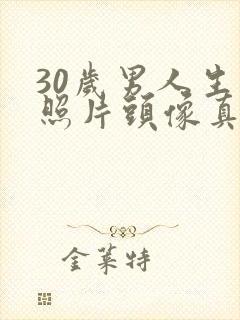 30歲男人生
照片頭像真
金萊特